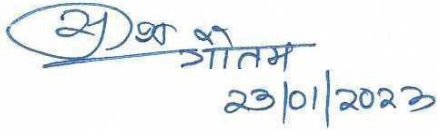 गौतम
23/01/2023